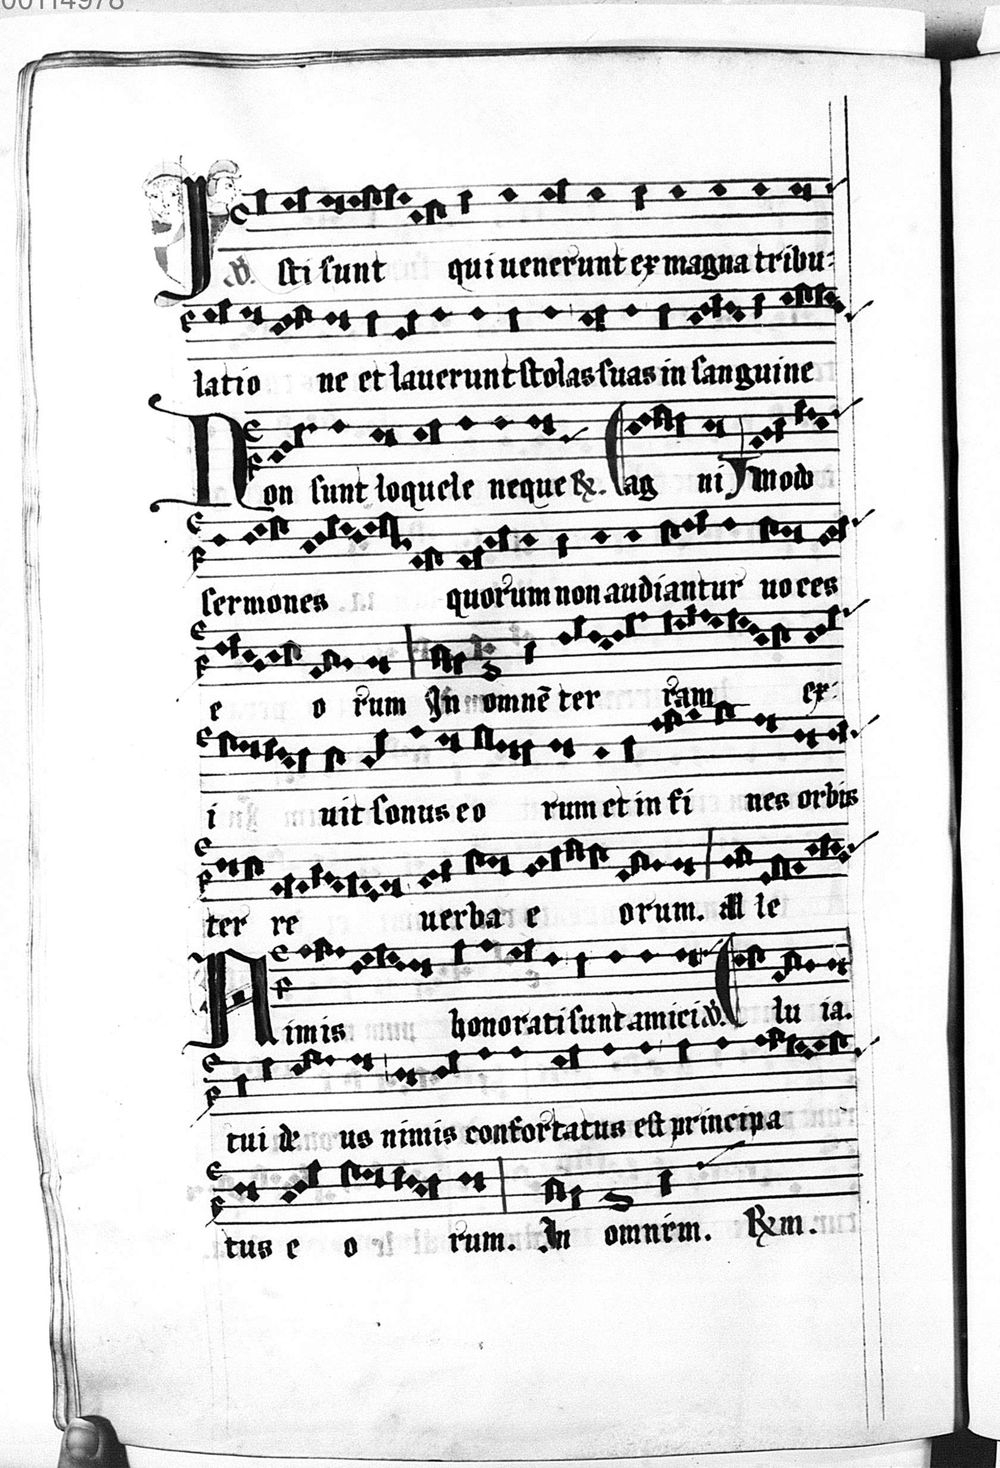 00114978
I ℣. sti sunt qui uenerunt ex magna tribu-
latio ne et lauerunt stolas suas in sanguine
Non sunt loquele neque ℟. ag ni modo
sermones quorum non audiantur uoces
e o rum In omnē ter ram ex-
i uit sonus eo rum et in fi nes orbis
ter re uerba e orum. all le
Nimis honorati sunt amici ℣. lu ia.
tui de us nimis confortatus est principa
tus e o rum. In omnem. ℟m.